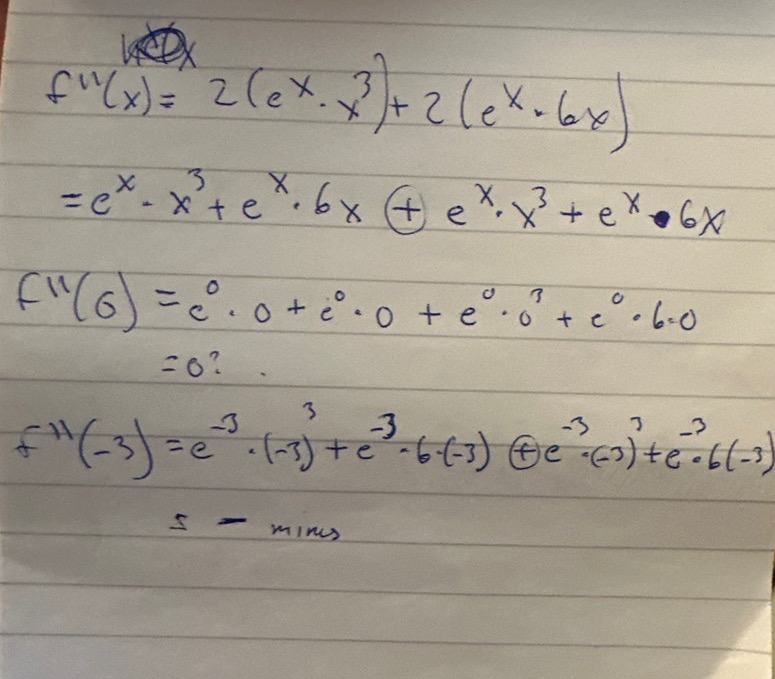 f''(x) = 2(e^x · x^3) + 2(e^x · 6x)
= e^x · x^3 + e^x · 6x ⊕ e^x · x^3 + e^x · 6x
f''(0) = e^0 · 0 + e^0 · 0 + e^0 · 0^3 + e^0 · 6·0
= 0? .
f''(-3) = e^-3 · (-3)^3 + e^-3 · 6·(-3) ⊕ e^-3 · (-3)^3 + e^-3 · 6(-3)
= − minus